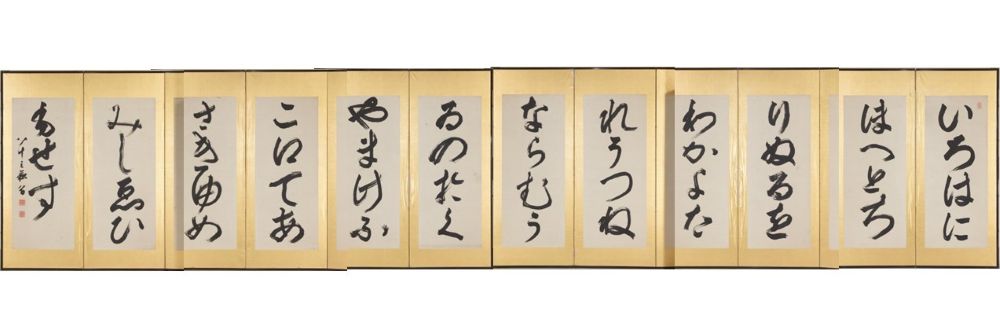 いろはに
ほへとち
りぬるを
わかよた
れそつね
ならむう
ゐのおく
やまけふ
こえてあ
さきゆめ
みしゑひ
もせす
八十三